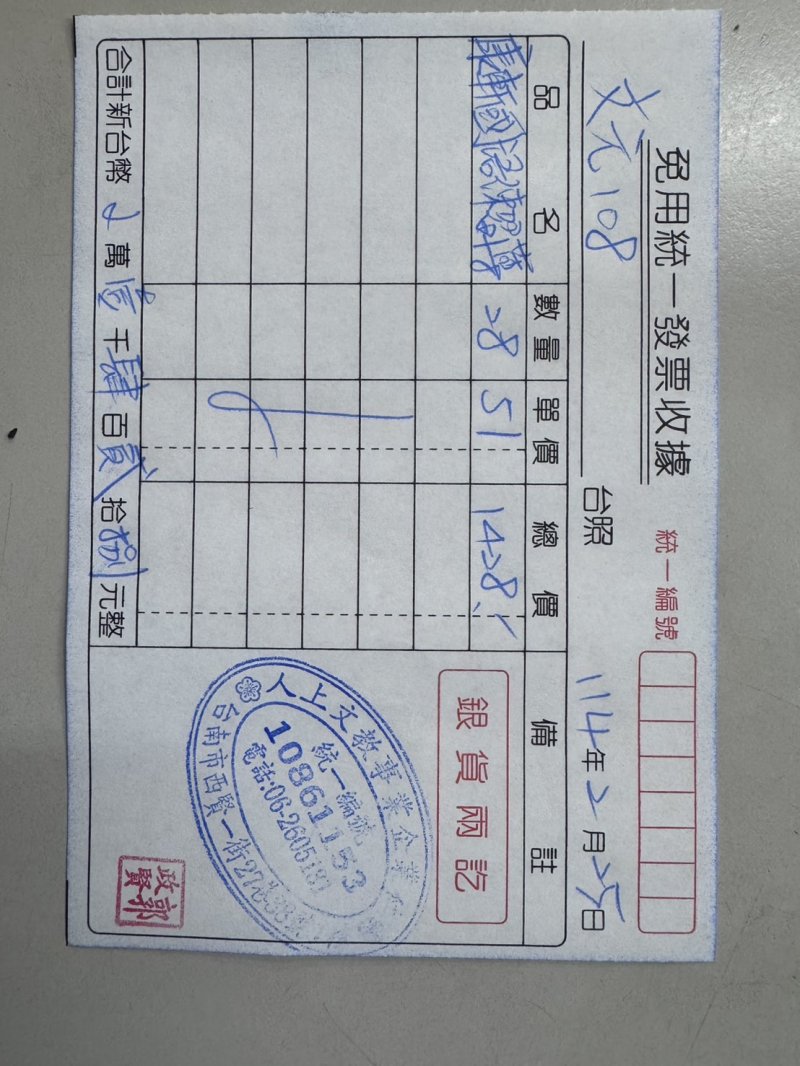 免用統一發票收據
統一編號
文元108 台照
114年2月25日
品名 數量 單價 總價 備註
康軒國語練習簿 28 51 1428
銀貨兩訖
人上文教事業企業
統一編號
10861153
電話:06-2605181
台南市西賢一街27
郭政賢
合計新台幣 萬壹千肆百貳拾捌元整